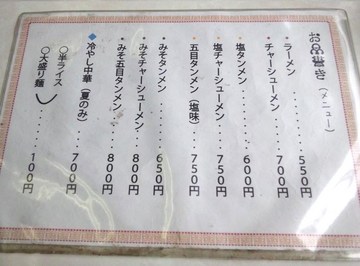 お品書き（メニュー）
・ラーメン・・・・・・・550円
・チャーシューメン・・・・700円
・塩タンメン・・・・・・600円
・塩チャーシューメン・・・750円
・五目タンメン（塩味）・・・750円
・みそタンメン・・・・・・650円
・みそチャーシューメン・・・800円
・みそ五目タンメン・・・・800円
◆冷やし中華（夏のみ）・・・700円
○半ライス
○大盛り麺・・・・・100円